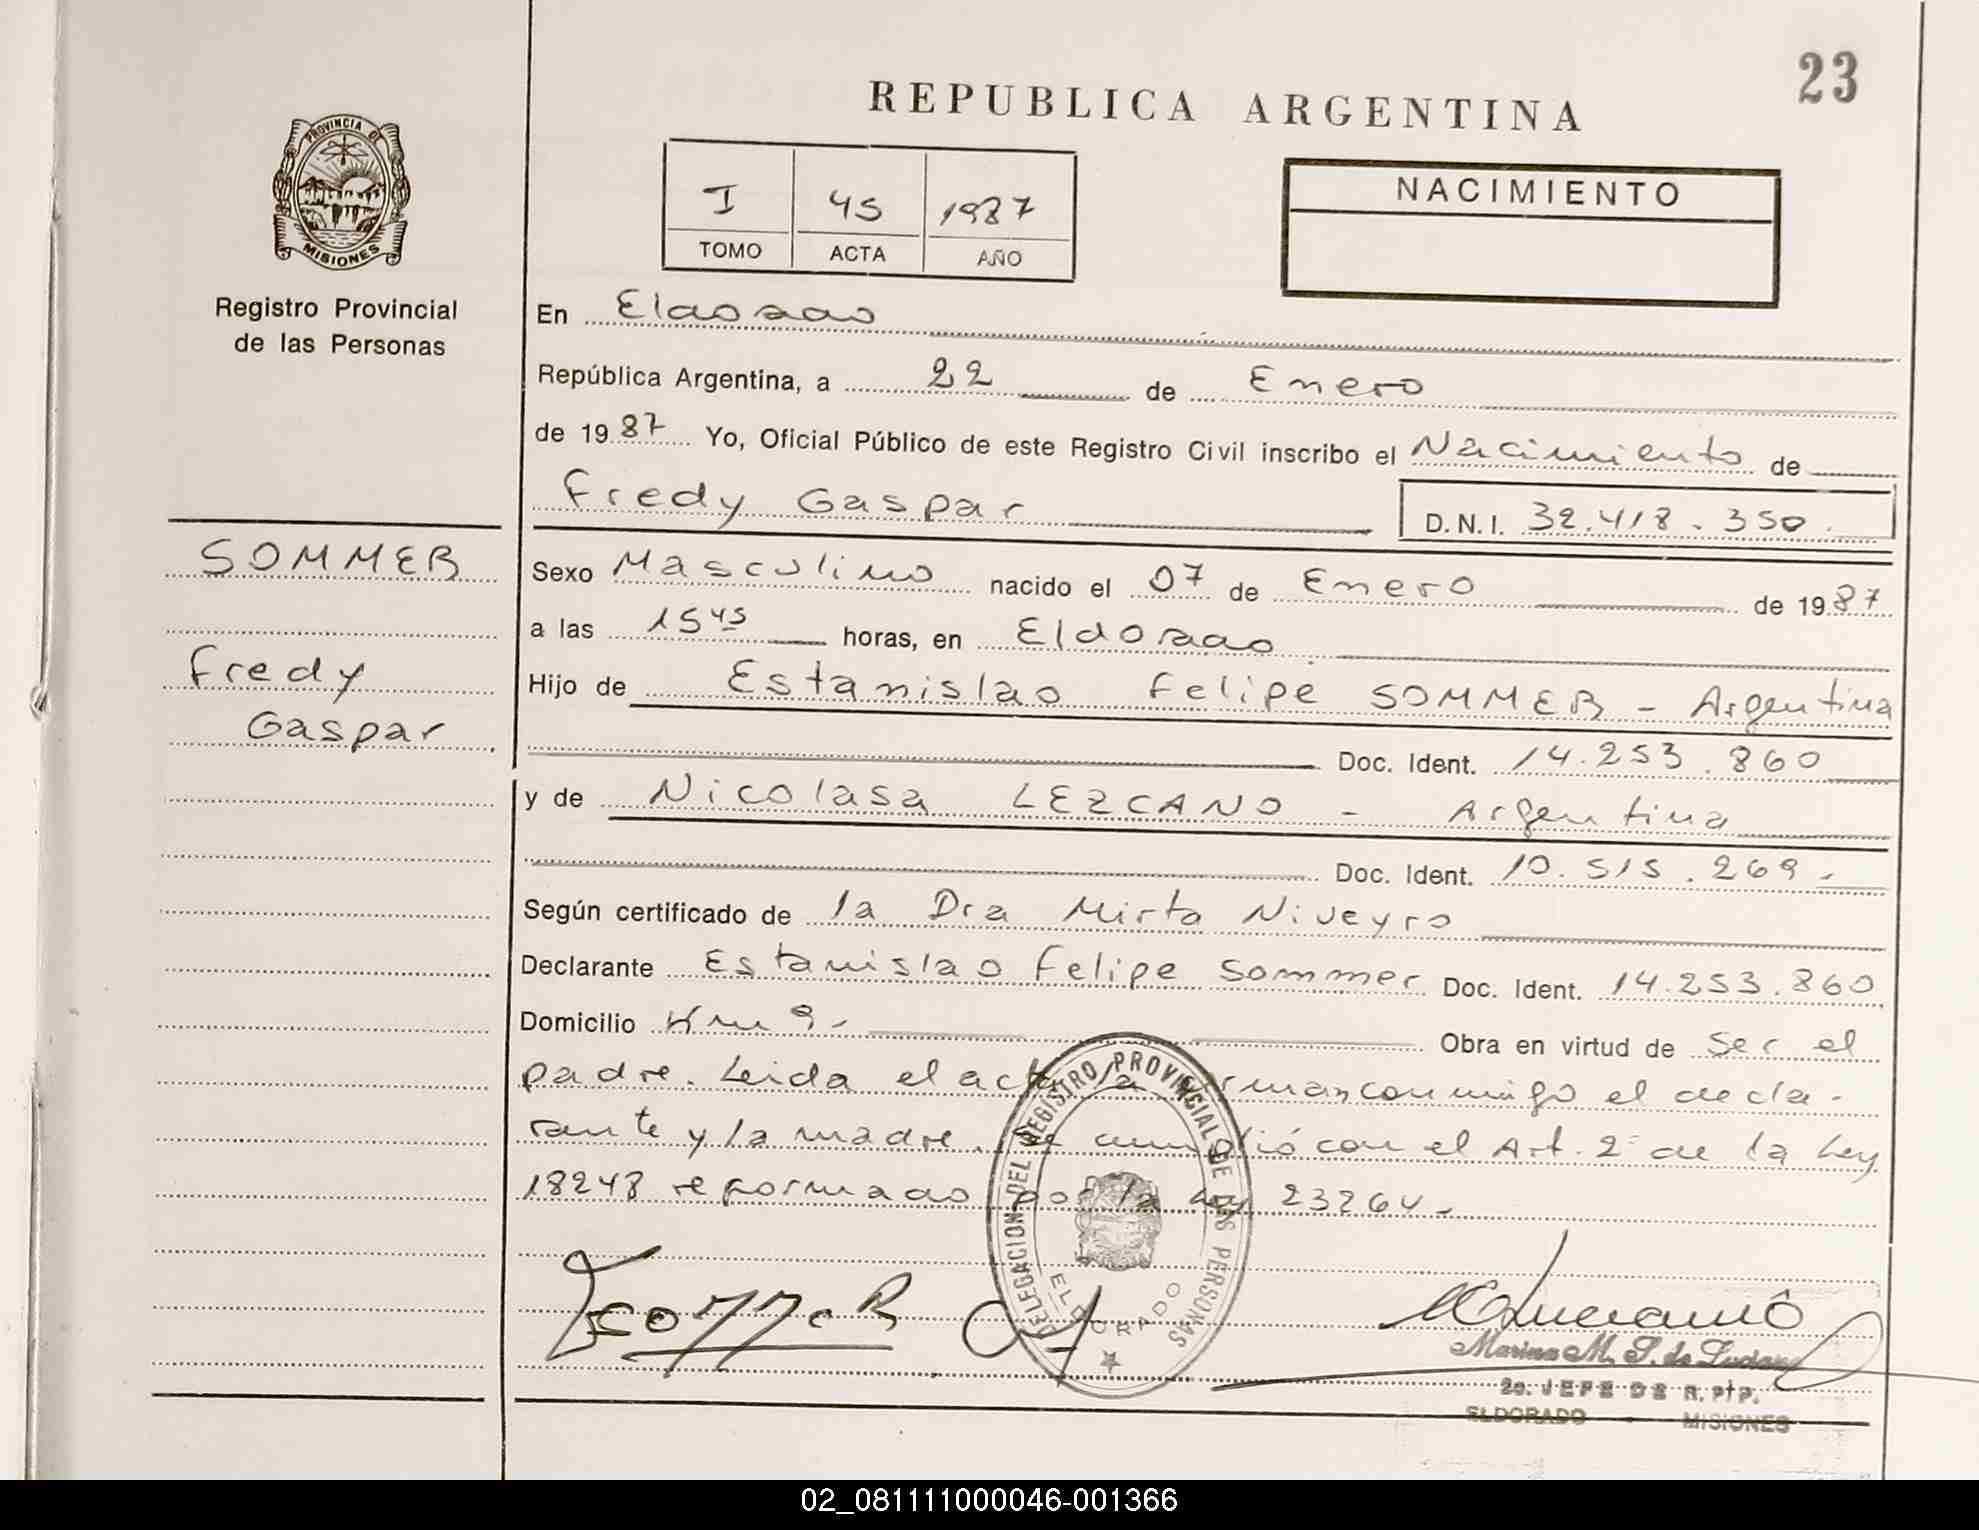 23
REPUBLICA ARGENTINA
PROVINCIA DE
MISIONES
Registro Provincial
de las Personas
I 45 1987
TOMO ACTA AÑO
NACIMIENTO
En Eldorado
República Argentina, a 22 de Enero
de 1987 Yo, Oficial Público de este Registro Civil inscribo el Nacimiento de
Fredy Gaspar D.N.I. 32.418.350.
SOMMER
Fredy
Gaspar
Sexo Masculino nacido el 07 de Enero de 1987
a las 15 45 horas, en Eldorado
Hijo de Estanislao Felipe SOMMER - Argentina
Doc. Ident. 14.253.860
y de Nicolasa LEZCANO - Argentina
Doc. Ident. 10.515.269.-
Según certificado de la Dra Mirta Niveyro
Declarante Estanislao Felipe Sommer Doc. Ident. 14.253.860
Domicilio Km 9.- Obra en virtud de ser el
padre. Leida el acta la firman conmigo el decla-
rante y la madre. Se cumplió con el Art. 2º de la Ley
18248 reformado por la Ley 23264.-
DELEGACION DEL REGISTRO PROVINCIAL DE LAS PERSONAS
ELDORADO
Marina M. S. de Luciano
2o. JEFE DE R. P/P.
ELDORADO - MISIONES
02_081111000046-001366